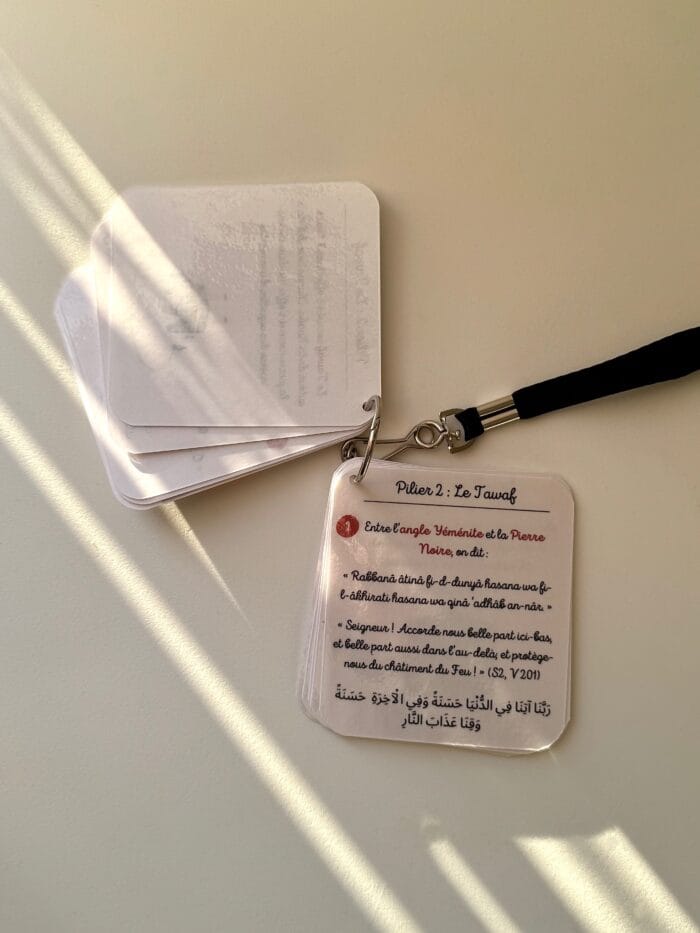 Pilier 2 : Le Tawaf
3 Entre l'angle Yéménite et la Pierre
Noire, on dit :
« Rabbanâ âtinâ fi-d-dunyâ hasana wa fi-
l-âkhirati hasana wa qinâ 'adhâb an-nâr. »
« Seigneur ! Accorde nous belle part ici-bas,
et belle part aussi dans l'au-delà, et protège-
nous du châtiment du Feu ! » (S2, V201)
رَبَّنَا آتِنَا فِي الدُّنْيَا حَسَنَةً وَفِي الْآخِرَةِ حَسَنَةً
وَقِنَا عَذَابَ النَّارِ